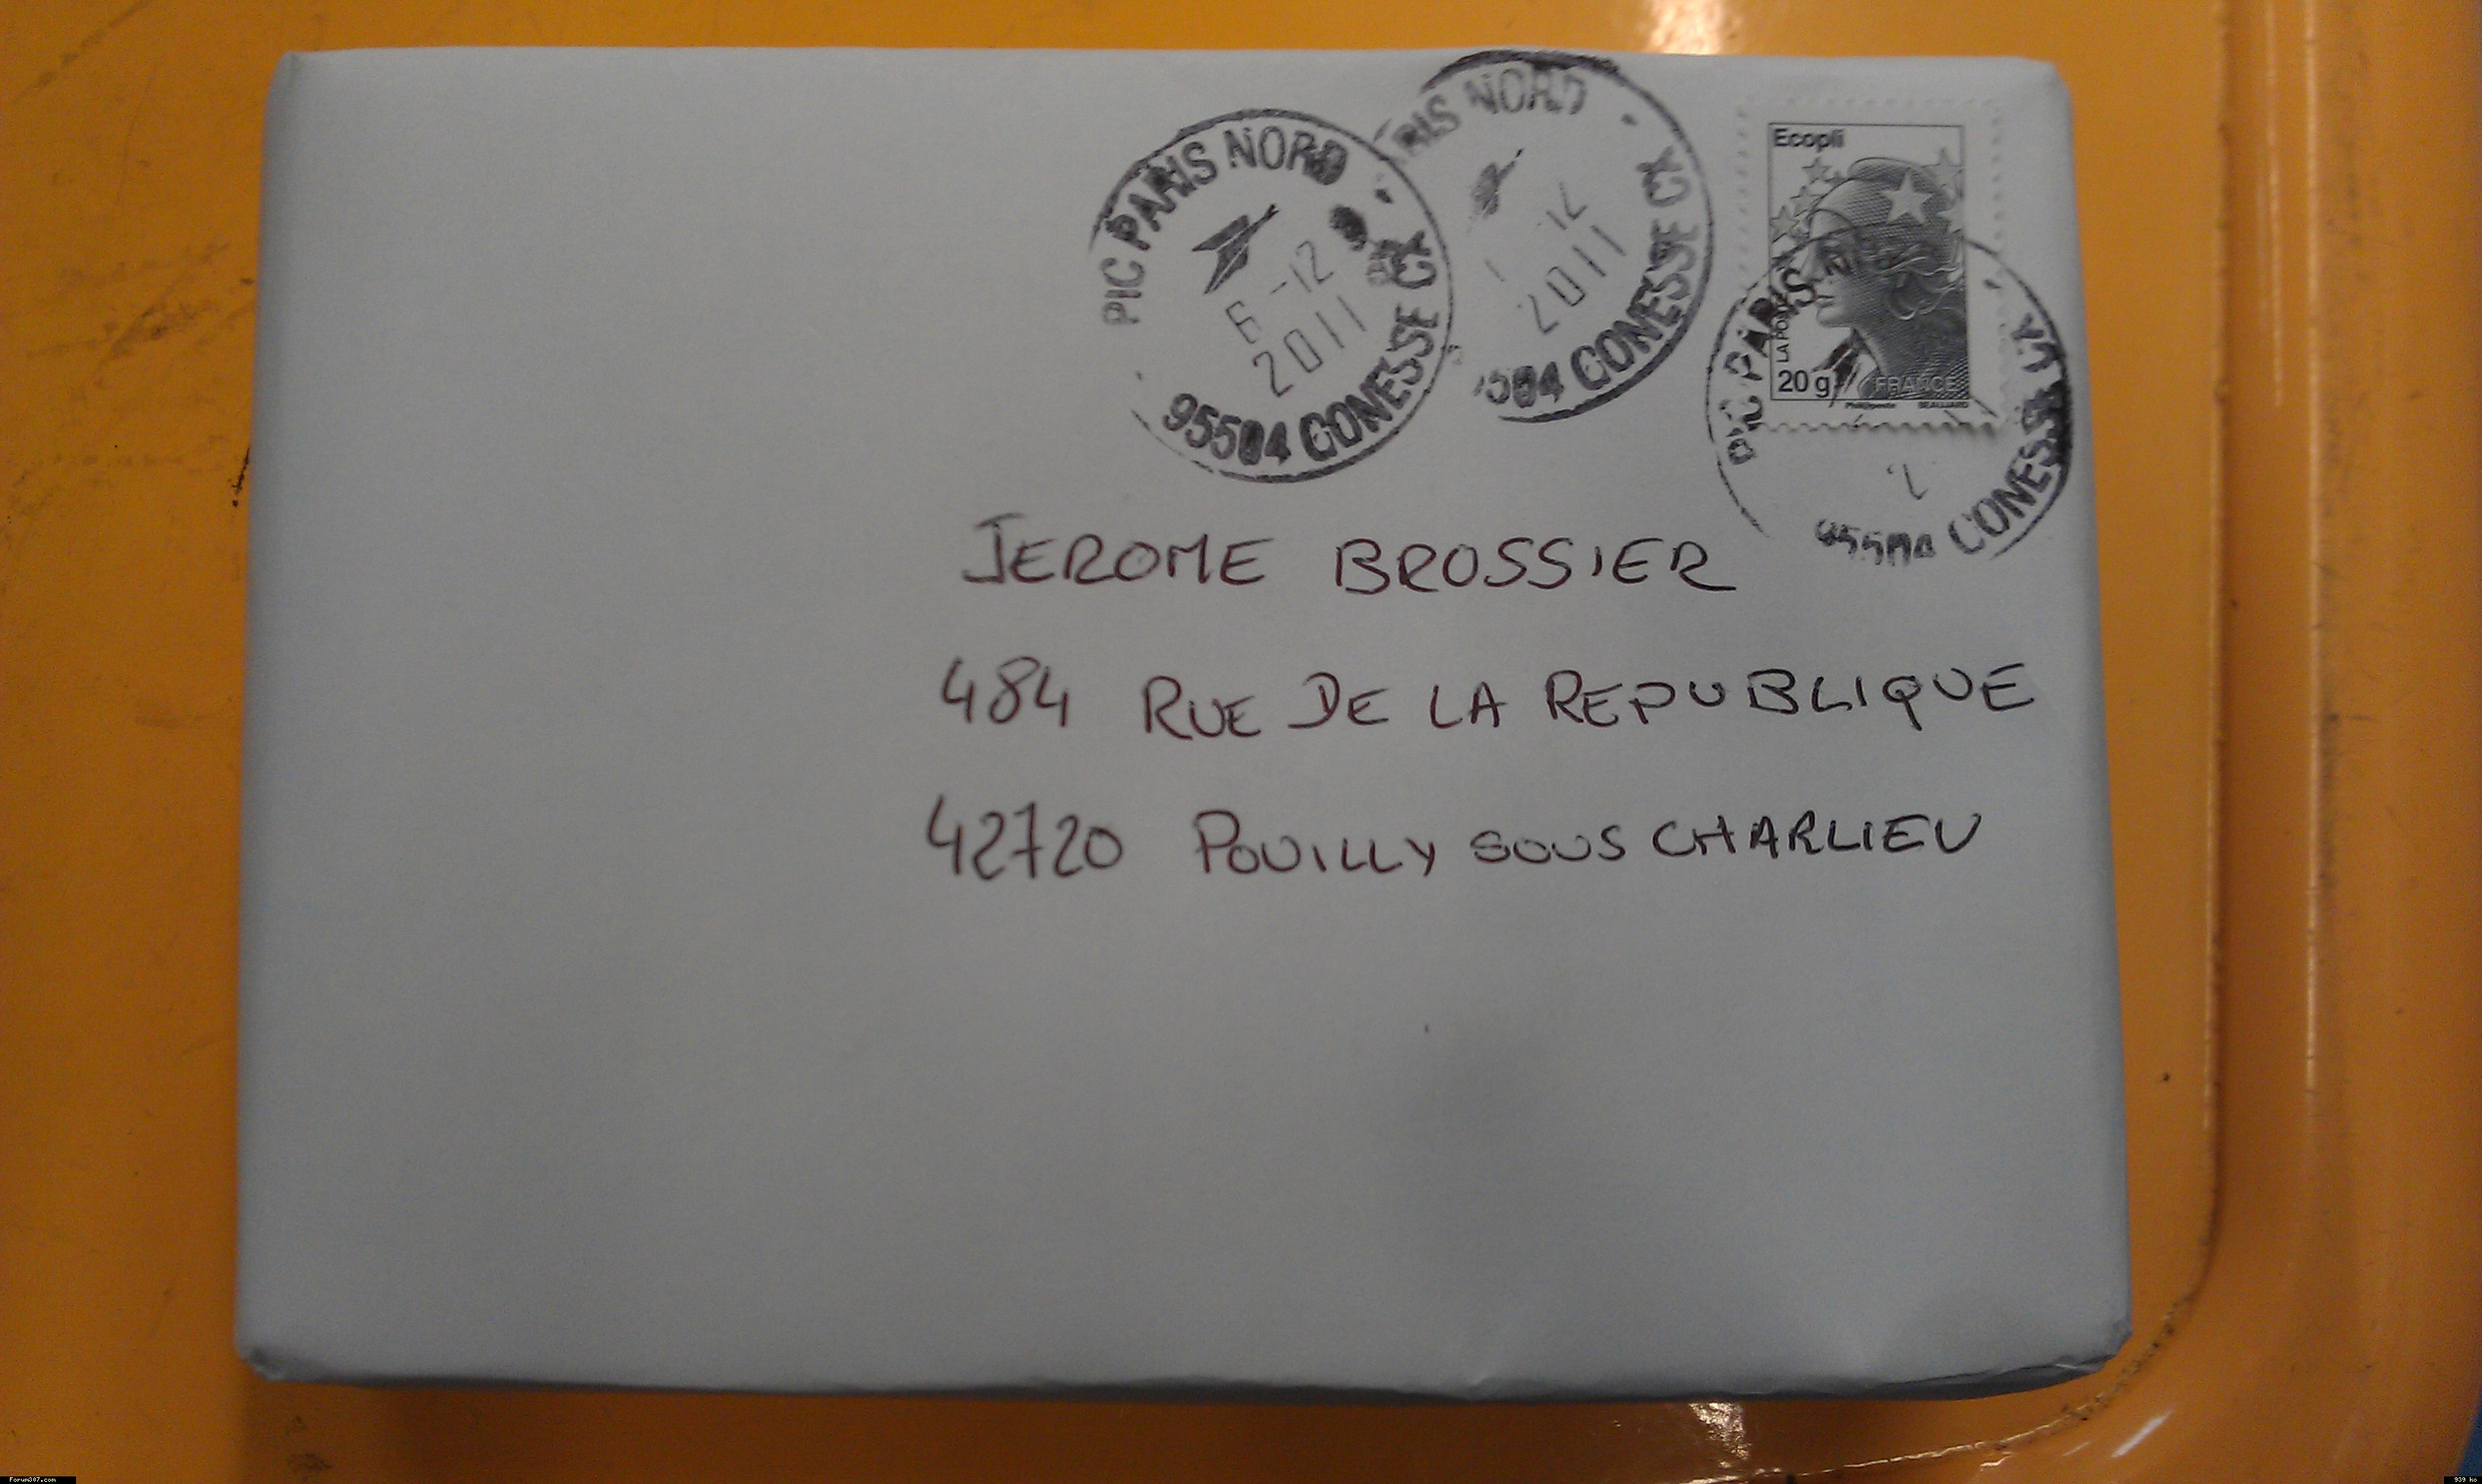 PIC PARIS NORD
6 -12
2011
95504 GONESSE CX
RIS NORD
12
2011
GONESSE CX
Ecopli
LA POSTE
20 g
FRANCE
PIC PARIS
GONESSE
JEROME BROSSIER
484 RUE DE LA REPUBLIQUE
42720 POUILLY SOUS CHARLIEU
Forum307.com
939 ko